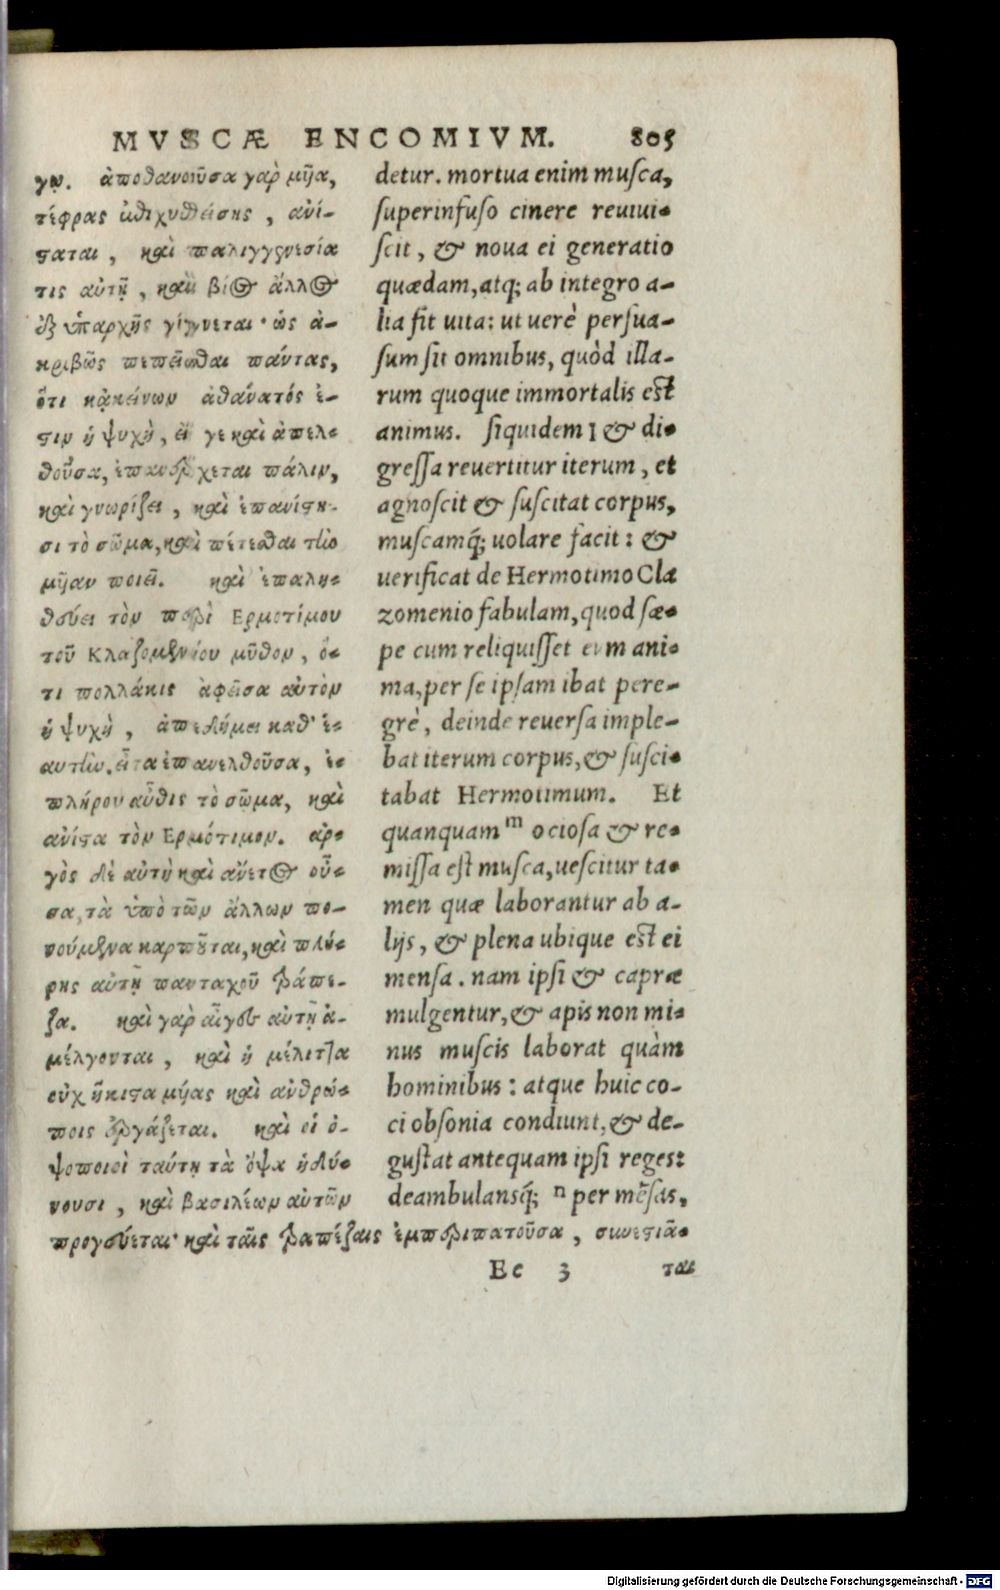 MVSCÆ ENCOMIVM. 805
γῳ. ἀποθανοῦσα γὰρ μῦα,
τέφρας ἐπιχυθείσης, ἀνί-
σταται, καὶ παλιγγενεσία
τις αὐτῇ, καὶ βίος ἄλλος
ἐξ ὑπαρχῆς γίγνεται· ὡς ἀ-
κριβῶς πεπεῖσθαι πάντας,
ὅτι κᾀκείνων ἀθάνατός ἐ-
στιν ἡ ψυχὴ, εἴ γε καὶ ἀπελ-
θοῦσα, ἐπανέρχεται πάλιν,
καὶ γνωρίζει, καὶ ἐπανίστη-
σι τὸ σῶμα, καὶ πέτεσθαι τὴν
μῦαν ποιεῖ. καὶ ἐπαλη-
θεύει τὸν περὶ Ερμοτίμου
τοῦ Κλαζομενίου μῦθον, ὅ-
τι πολλάκις ἀφεῖσα αὐτὸν
ἡ ψυχὴ, ἀπεδήμει καθ' ἑ-
αυτὴν. εἶτα ἐπανελθοῦσα, ἐ-
πλήρου αὖθις τὸ σῶμα, καὶ
ἀνίστα τὸν Ερμότιμον. ἀρ-
γὸς δὲ αὐτὴ καὶ ἄνετος οὖ-
σα, τὰ ὑπὸ τῶν ἄλλων πο-
νούμενα καρποῦται, καὶ πλή-
ρης αὐτῇ πανταχοῦ τράπε-
ζα. καὶ γὰρ αἶγες αὐτῇ ἀ-
μέλγονται, καὶ ἡ μέλιττα
οὐχ ἥκιστα μύας καὶ ἀνθρώ-
ποις ἐργάζεται. καὶ οἱ ὀ-
ψοποιοὶ ταύτῃ τὰ ὄψα ἡδύ-
νουσι, καὶ βασιλέων αὐτῶν
προγεύεται· καὶ ταῖς τραπέζαις ἐμπεριπατοῦσα, συνεστιᾶ-
detur. mortua enim musca,
superinfuso cinere reuiui-
scit, & noua ei generatio
quædam, atq; ab integro a-
lia fit uita: ut uerè persua-
sum sit omnibus, quòd illa-
rum quoque immortalis est
animus. siquidem l & di-
gressa reuertitur iterum, et
agnoscit & suscitat corpus,
muscamq́; uolare facit: &
uerificat de Hermotimo Cla
zomenio fabulam, quod sæ-
pe cum reliquisset eum ani-
ma, per se ipsam ibat pere-
grè, deinde reuersa imple-
bat iterum corpus, & susci-
tabat Hermotimum. Et
quanquam m ociosa & re-
missa est musca, uescitur ta-
men quæ laborantur ab a-
lijs, & plena ubique est ei
mensa. nam ipsi & capræ
mulgentur, & apis non mi-
nus muscis laborat quàm
hominibus: atque huic co-
ci obsonia condiunt, & de-
gustat antequam ipsi reges:
deambulansq́; n per mẽsas,
Ee 3 ται
Digitalisierung gefördert durch die Deutsche Forschungsgemeinschaft - DFG